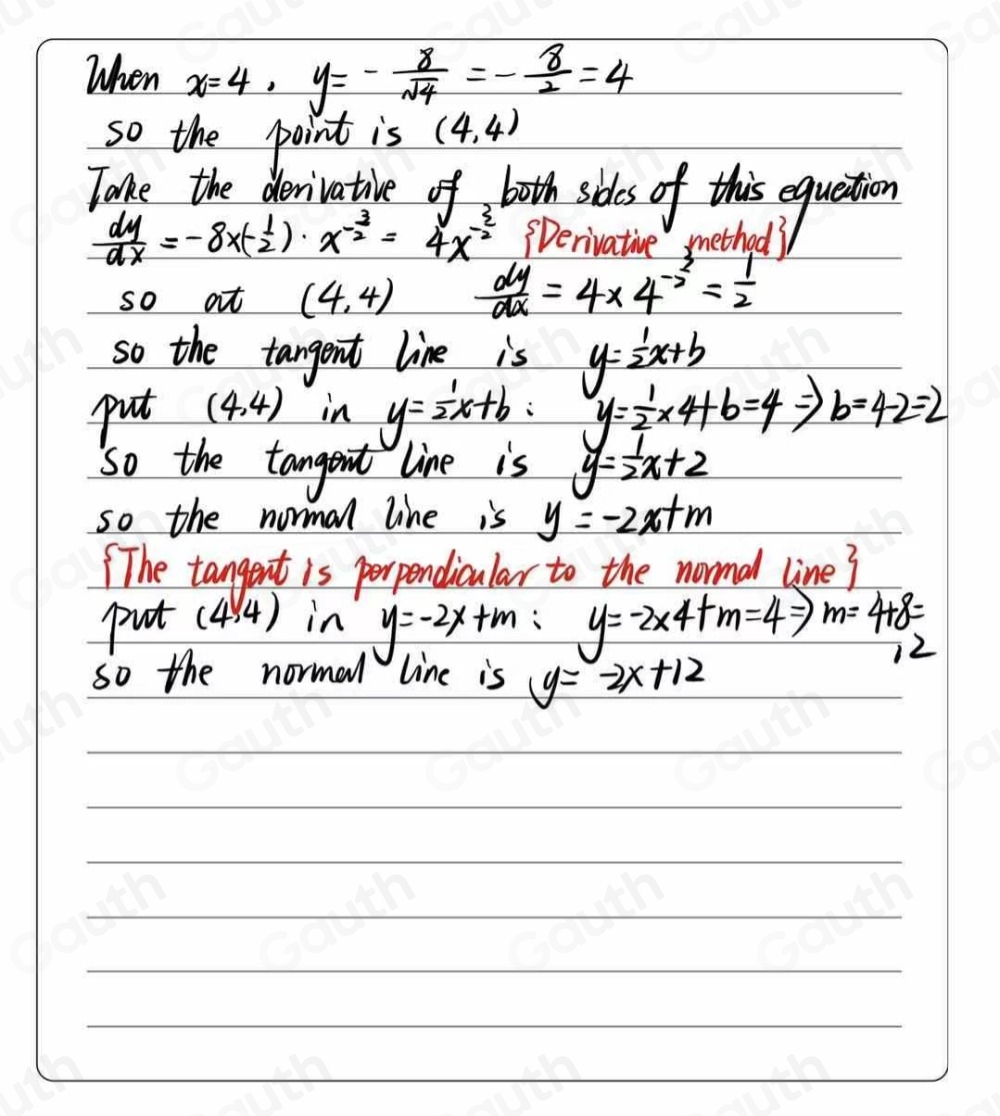 When x=4, y= -8/√4 = -8/2 = 4
so the point is (4,4)
Take the derivative of both sides of this equation
dy/dx = -8×(-1/2)·x^(-3/2) = 4x^(-3/2) {Derivative method}
so at (4,4) dy/dx = 4×4^(-3/2) = 1/2
so the tangent line is y=1/2x+b
put (4,4) in y=1/2x+b: y=1/2×4+b=4 ⇒ b=4-2=2
so the tangent line is y=1/2x+2
so the normal line is y=-2x+m
{The tangent is perpendicular to the normal line}
put (4,4) in y=-2x+m: y=-2×4+m=4 ⇒ m=4+8=
12
so the normal line is y=-2x+12